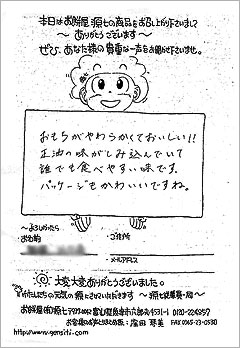 本日はお餅屋 源七の商品をお召し上がり下さいまして
〜 ありがとうございます 〜
ぜひ、あなた様の貴重な一声をお聞かせ下さいませ。
おもちがやわらかくておいしい!!
正油の味がしみ込んでいて
誰でも食べやすい味です。
パッケージもかわいいですね。
〜よろしかったら
お名前
ご住所
メールアドレス
大変大変ありがとうございました。
わたしたちの元気の源とさせていただきます 〜源七従業員一同〜
http://www.gensiti.com